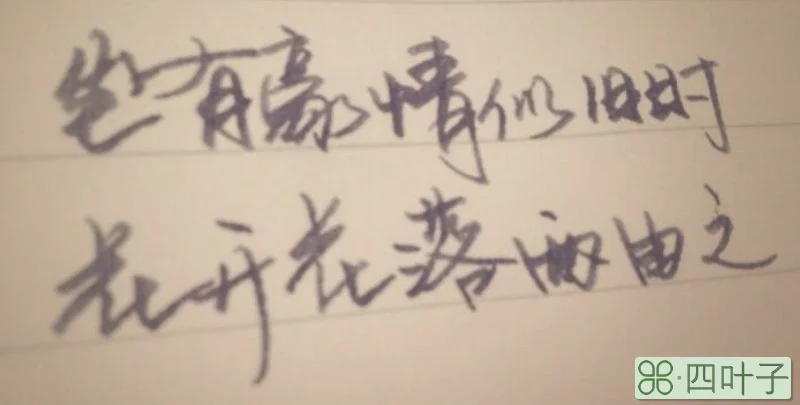 岂有豪情似旧时
花开花落两由之
四叶子